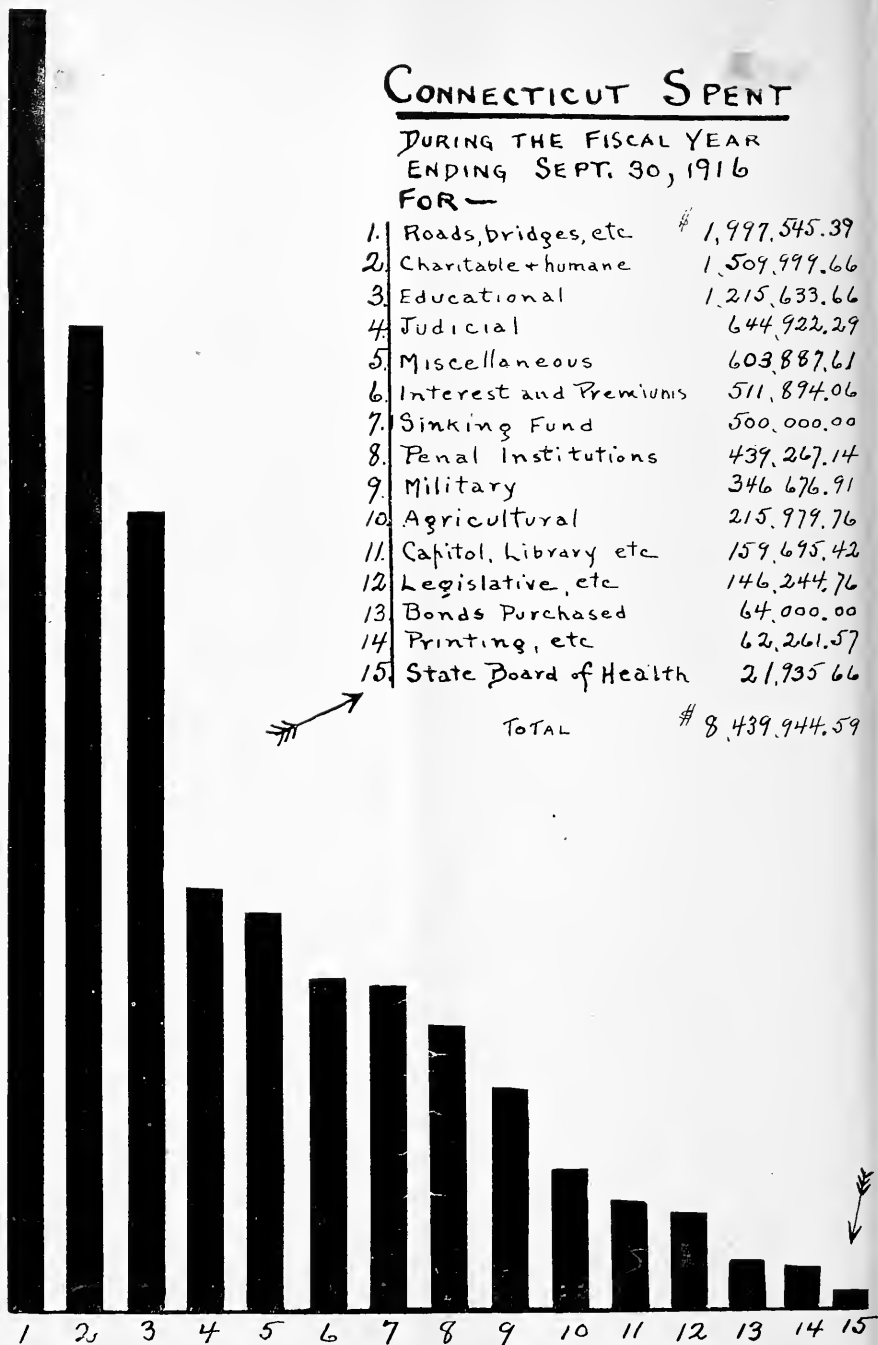 CONNECTICUT SPENT
DURING THE FISCAL YEAR
ENDING SEPT. 30, 1916
FOR—
1. Roads, bridges, etc $ 1,997,545.39
2. Charitable + humane 1,509,999.66
3. Educational 1,215,633.66
4. Judicial 644,922.29
5. Miscellaneous 603,887.61
6. Interest and Premiums 511,894.06
7. Sinking Fund 500,000.00
8. Penal Institutions 439,267.14
9. Military 346 676.91
10. Agricultural 215,979.76
11. Capitol, Library etc 159,695.42
12. Legislative, etc 146,244.76
13. Bonds Purchased 64,000.00
14. Printing, etc 62,261.57
15. State Board of Health 21,935 66
TOTAL $ 8,439,944.59
1 2 3 4 5 6 7 8 9 10 11 12 13 14 15